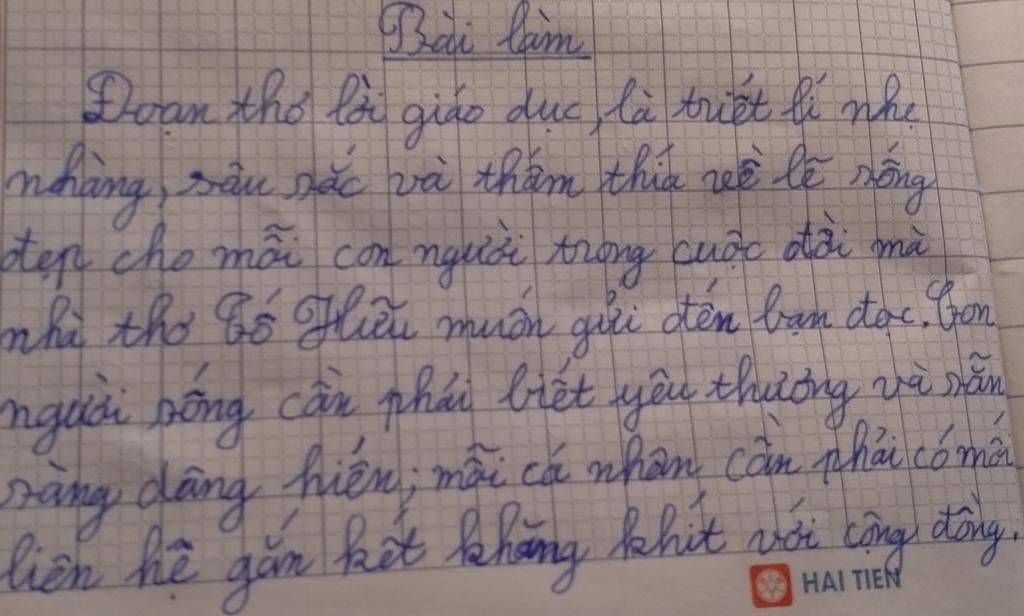 Bài làm
Đoạn thơ lời giáo dục, là triết lí nhẹ
nhàng, sâu sắc và thấm thía về lẽ sống
đẹp cho mỗi con người trong cuộc đời mà
nhà thơ Tố Hữu muốn gửi đến bạn đọc. Con
người sống cần phải biết yêu thương và sẵn
sàng dâng hiến; mỗi cá nhân cần phải có mối
liên hệ gắn kết khăng khít với cộng đồng.
HAI TIEN